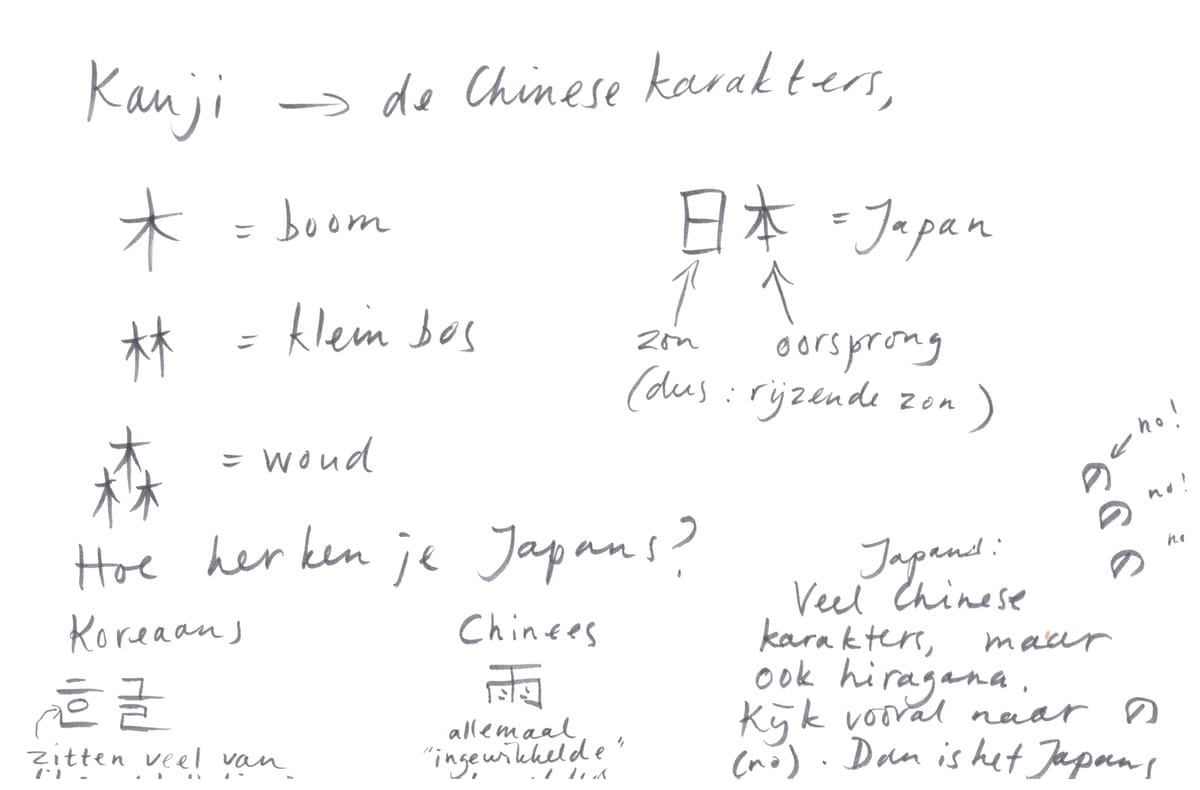 Kanji → de Chinese karakters,
木 = boom
日本 = Japan
zon oorsprong
(dus: rijzende zon)
林 = klein bos
森 = woud
no!
の
no!
の
の
Hoe herken je Japans?
Koreaans
흔글
zitten veel van
Chinees
雨
allemaal
"ingewikkelde"
Japans:
Veel Chinese
karakters, maar
ook hiragana.
Kijk vooral naar の
(no). Dan is het Japans